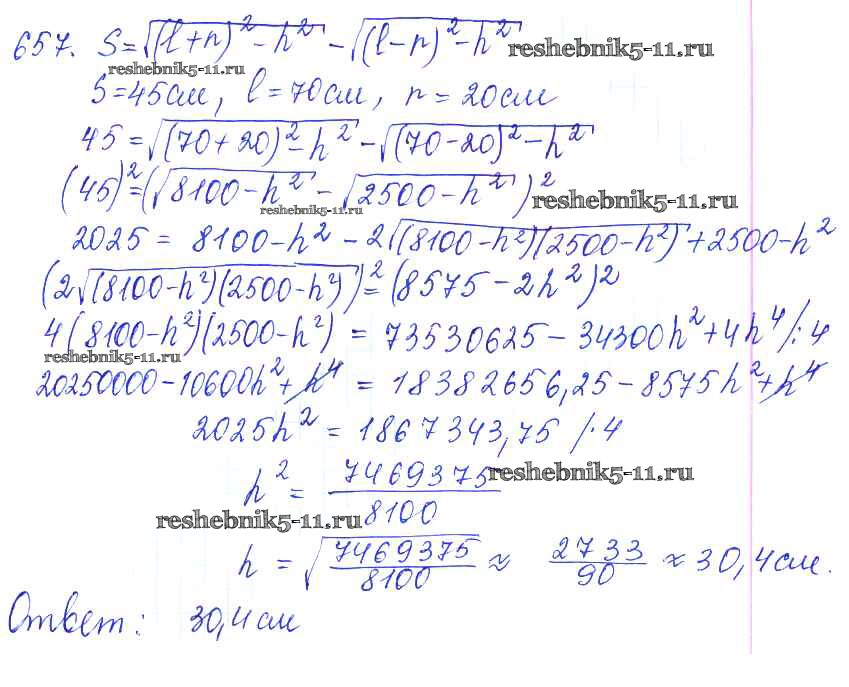 657. S=√(l+r)²-h² - √(l-r)²-h² reshebnik5-11.ru
reshebnik5-11.ru
S=45см, l=70см, r=20см
45=√(70+20)²-h² - √(70-20)²-h²
(45)²=(√8100-h² - √2500-h²)² reshebnik5-11.ru
reshebnik5-11.ru
2025 = 8100-h² - 2√(8100-h²)(2500-h²) + 2500-h²
(2√(8100-h²)(2500-h²))²=(8575-2h²)²
4(8100-h²)(2500-h²) = 73530625 - 34300h²+4h⁴ /:4
reshebnik5-11.ru
20250000-10600h²+h⁴ = 18382656,25-8575h²+h⁴
2025h² = 1867343,75 /·4
h² = 7469375/8100 reshebnik5-11.ru
reshebnik5-11.ru
h = √7469375/8100 ≈ 2733/90 ≈ 30,4см.
Ответ: 30,4см